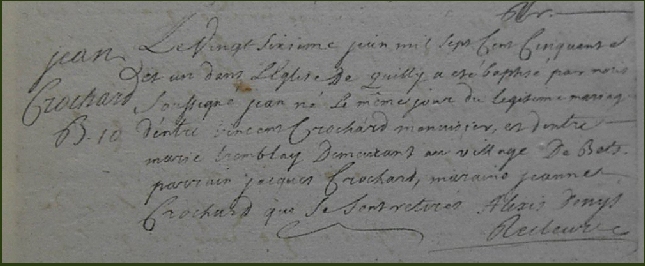 jean
Crochard
B. 10
Le vingt sixieme juin mil sept cent cinquante
et un dans L'Eglise De quilly a eté baptisé par nous
soussigné jean né Le même jour du legitime mariag
d'entre vincent Crochard menuisier, et d'entre
marie tremblay Demeurant au village De
parrain jacques Crochard, maraine jeanne
Crochard que se sont retires Alexis Denys
Recteur